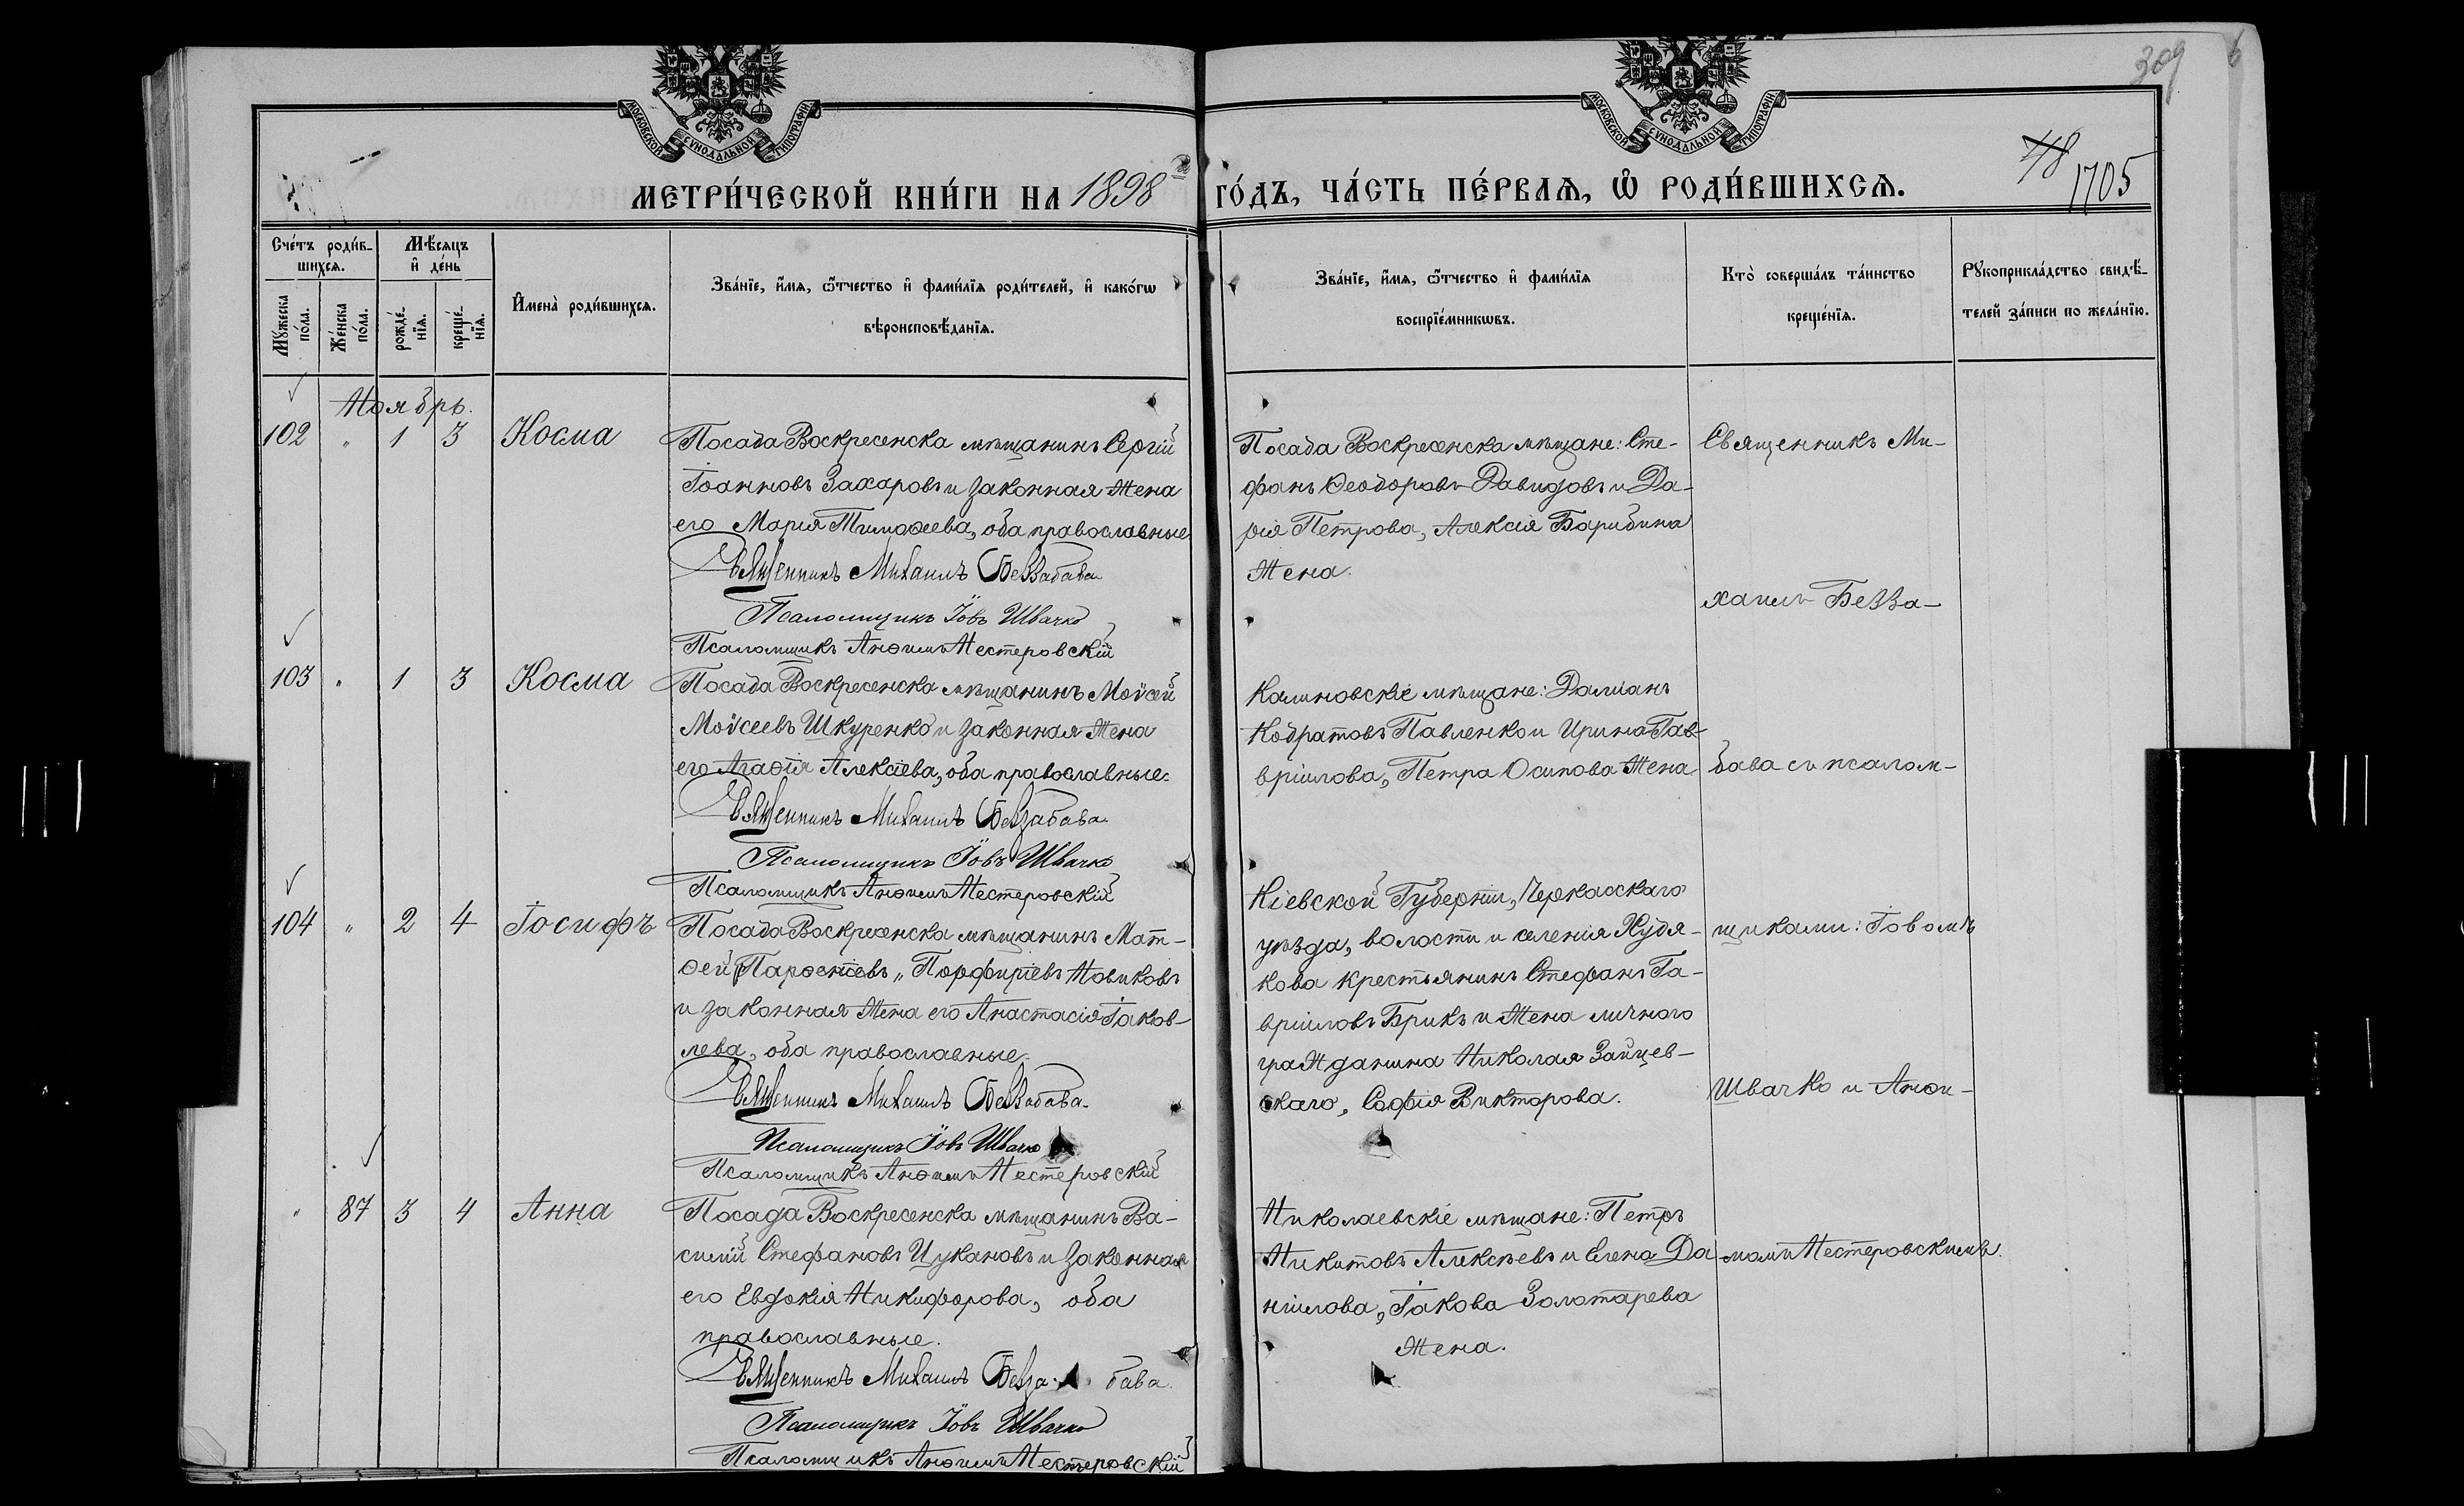 309 6
МОСКОВСКОЙ СѴНОДАЛЬНОЙ ТИПОГРАФІИ
МОСКОВСКОЙ СѴНОДАЛЬНОЙ ТИПОГРАФІИ
48
1705
МЕТРИ́ЧЕСКОЙ КНИ́ГИ НА 1898 й ГО́ДЪ, ЧА́СТЬ ПЕ́РВАѦ, Ѡ҆ РОДИ́ВШИХСѦ.
Сче́тъ роди́в-
шихсѧ.
Мѣ́сѧцъ
и҆ де́нь
Мꙋ́жеска
по́ла.
Же́нска
по́ла.
рожде́-
нїѧ.
креще́-
нїѧ.
И҆мена̀ роди́вшихсѧ.
Зва́нїе, и҆́мѧ, ѻ҆́тчество и҆ фами́лїѧ роди́телей, и҆ како́гѡ
вѣроисповѣ́данїѧ.
Зва́нїе, и҆́мѧ, ѻ҆́тчество и҆ фами́лїѧ
воспрїе́мникѡвъ.
Кто̀ соверша́лъ та́инство
креще́нїѧ.
Рꙋкоприкла́дство свидѣ́-
телей за́писи по жела́нїю.
Ноябрь.
102 " 1 3 Косма
Посада Воскресенска мѣщанинъ Сергій
Іоанновъ Захаровъ и законная жена
его Марія Тимоѳеева, оба православные
Священникъ Михаилъ Беззабава
Псаломщикъ Іовъ Швачко
Псаломщикъ Анѳимъ Нестеровскій
Посада Воскресенска мѣщане: Сте-
фанъ Ѳеодоровъ Давидовъ и Да-
рія Петрова, Алексія Барибина
жена.
103 " 1 3 Косма
Посада Воскресенска мѣщанинъ Моѵсей
Моѵсеевъ Шкуренко и законная жена
его Агаѳія Алексіева, оба православные.
Священникъ Михаилъ Беззабава
Псаломщикъ Іовъ Швачко
Псаломщикъ Анѳимъ Нестеровскій
Калиновскіе мѣщане: Даміанъ
Кодратовъ Павленко и Ирина Гав-
вріилова, Петра Осипова жена
104 " 2 4 Іосифъ
Посада Воскресенска мѣщанинъ Мат-
ѳей Парѳеніевъ „Порфиріевъ Новиковъ
и законная жена его Анастасія Іаков-
лева, оба православные.
Священникъ Михаилъ Беззабава.
Псаломщикъ Іовъ Швачко
Псаломщикъ Анѳимъ Нестеровскій
Кіевской Губерніи, Черкасскаго
уѣзда, волости и селенія Худя-
кова крестьянинъ Стефанъ Га-
вріиловъ Брикъ и жена личного
гражданина Николая Зайцев-
скаго, Софія Викторова.
" 87 3 4 Анна
Посада Воскресенска мѣщанинъ Ва-
силій Стефановъ Цукановъ и законная
его Евдокія Никифорова, оба
православные.
Священникъ Михаилъ Безза бава.
Псаломщикъ Іовъ Швачко
Псаломщикъ Анѳимъ Нестеровскій
Николаевскіе мѣщане: Петръ
Никитовъ Алексѣевъ и Елена Да
ніилова, Іакова Золотарева
жена.
Священникъ Ми-
хаилъ Безза-
бава съ псалом-
щиками: Іовомъ
Швачко и Анѳи-
момъ Нестеровскимъ.